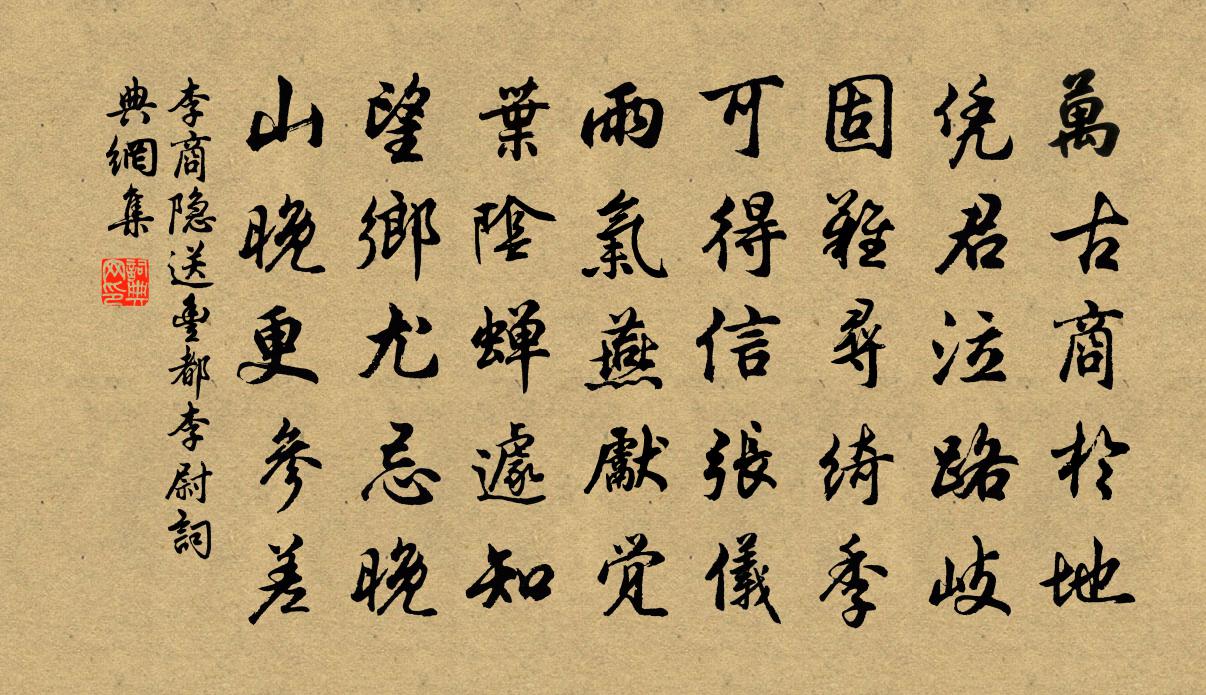 萬古商於地
凭君泣路岐
固難尋綺季
可得信張儀
雨氣燕獻觉
葉陰蟬遽知
望鄉尤忌晚
山晚更參差
李商隐送豊都李尉詞
典網集
詞典
网印